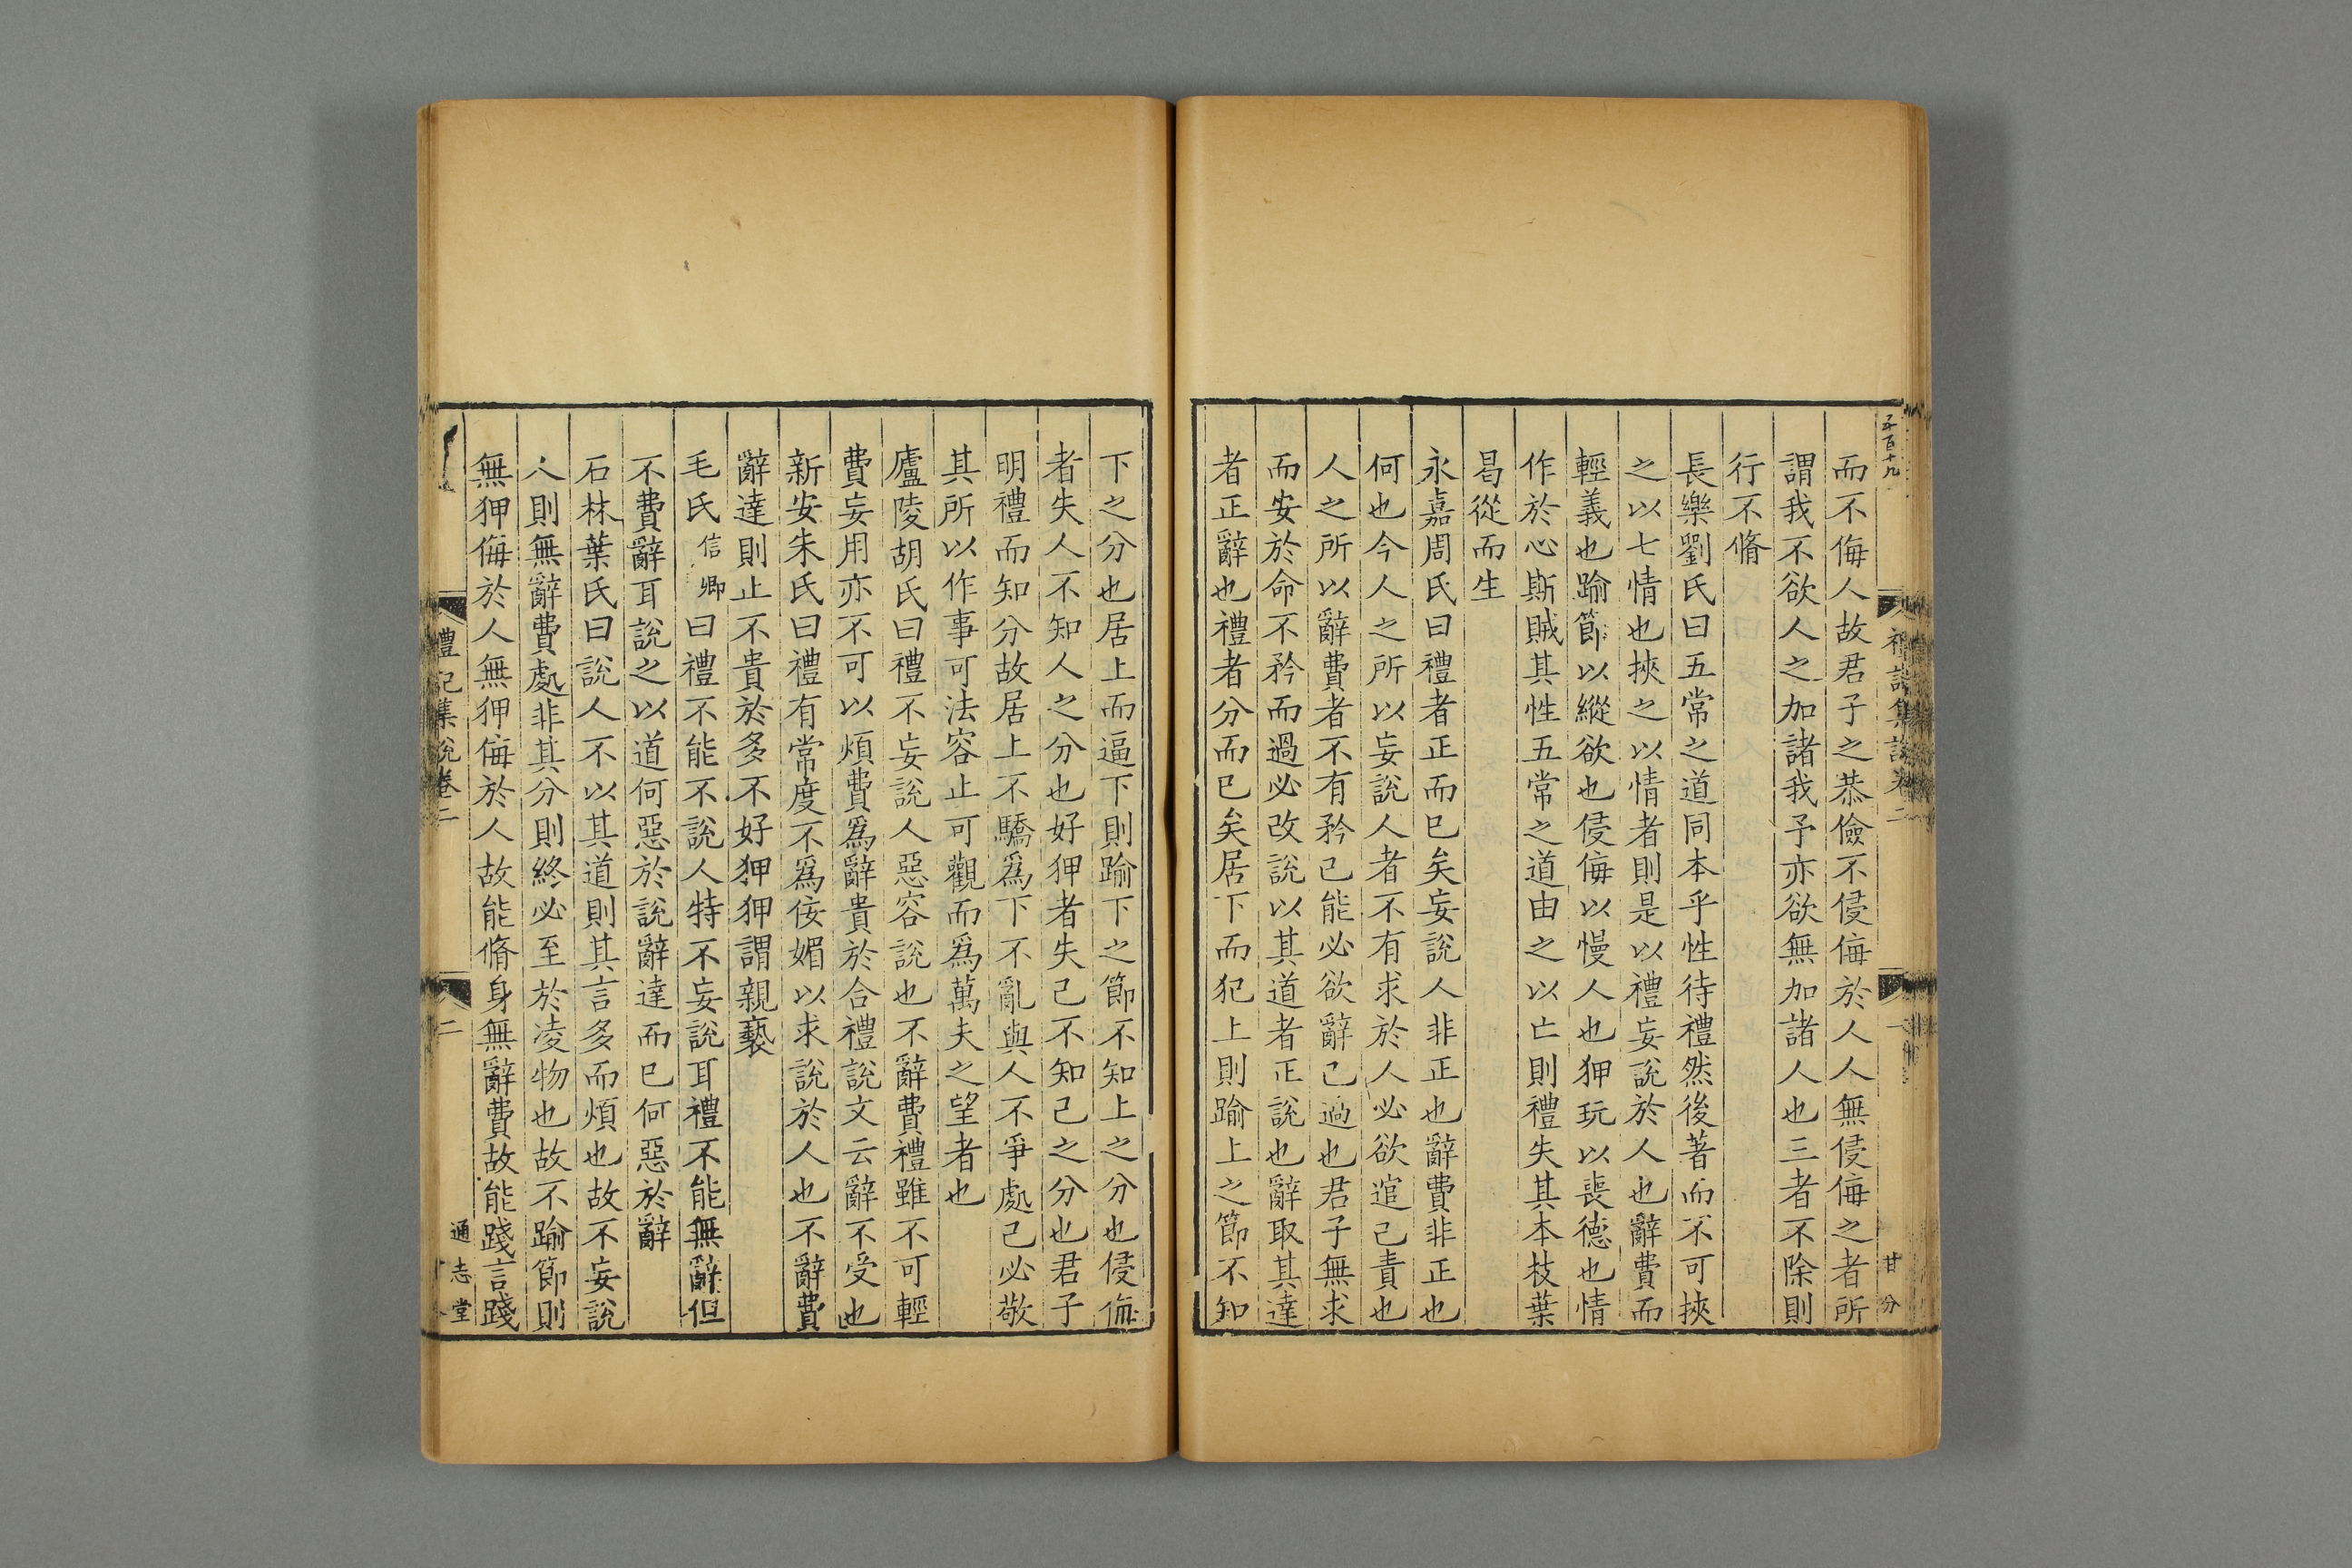 五百十九
禮記集說卷二
一
甘分
而不侮人故君子之恭儉不侵侮於人人無侵侮之者所
謂我不欲人之加諸我予亦欲無加諸人也三者不除則
行不脩
長樂劉氏曰五常之道同本乎性待禮然後著而不可挾
之以七情也挾之以情者則是以禮妄說於人也辭費而
輕義也踰節以縱欲也侵侮以慢人也狎玩以喪德也情
作於心斯賊其性五常之道由之以亡則禮失其本枝葉
曷從而生
永嘉周氏曰禮者正而已矣妄說人非正也辭費非正也
何也今人之所以妄說人者不有求於人必欲逭己責也
人之所以辭費者不有矜己能必欲辭己過也君子無求
而安於命不矜而過必改說以其道者正說也辭取其達
者正辭也禮者分而已矣居下而犯上則踰上之節不知
下之分也居上而逼下則踰下之節不知上之分也侵侮
者失人不知人之分也好狎者失己不知己之分也君子
明禮而知分故居上不驕爲下不亂與人不爭處己必敬
其所以作事可法容止可觀而爲萬夫之望者也
廬陵胡氏曰禮不妄說人惡容說也不辭費禮雖不可輕
費妄用亦不可以煩費爲辭貴於合禮說文云辭不受也
新安朱氏曰禮有常度不爲佞媚以求說於人也不辭費
辭達則止不貴於多不好狎狎謂親褻
毛氏信卿曰禮不能不說人特不妄說耳禮不能無辭但
不費辭耳說之以道何惡於說辭達而已何惡於辭
石林葉氏曰說人不以其道則其言多而煩也故不妄說
人則無辭費處非其分則終必至於凌物也故不踰節則
無狎侮於人無狎侮於人故能脩身無辭費故能踐言踐
禮記集說卷二
二
通志堂